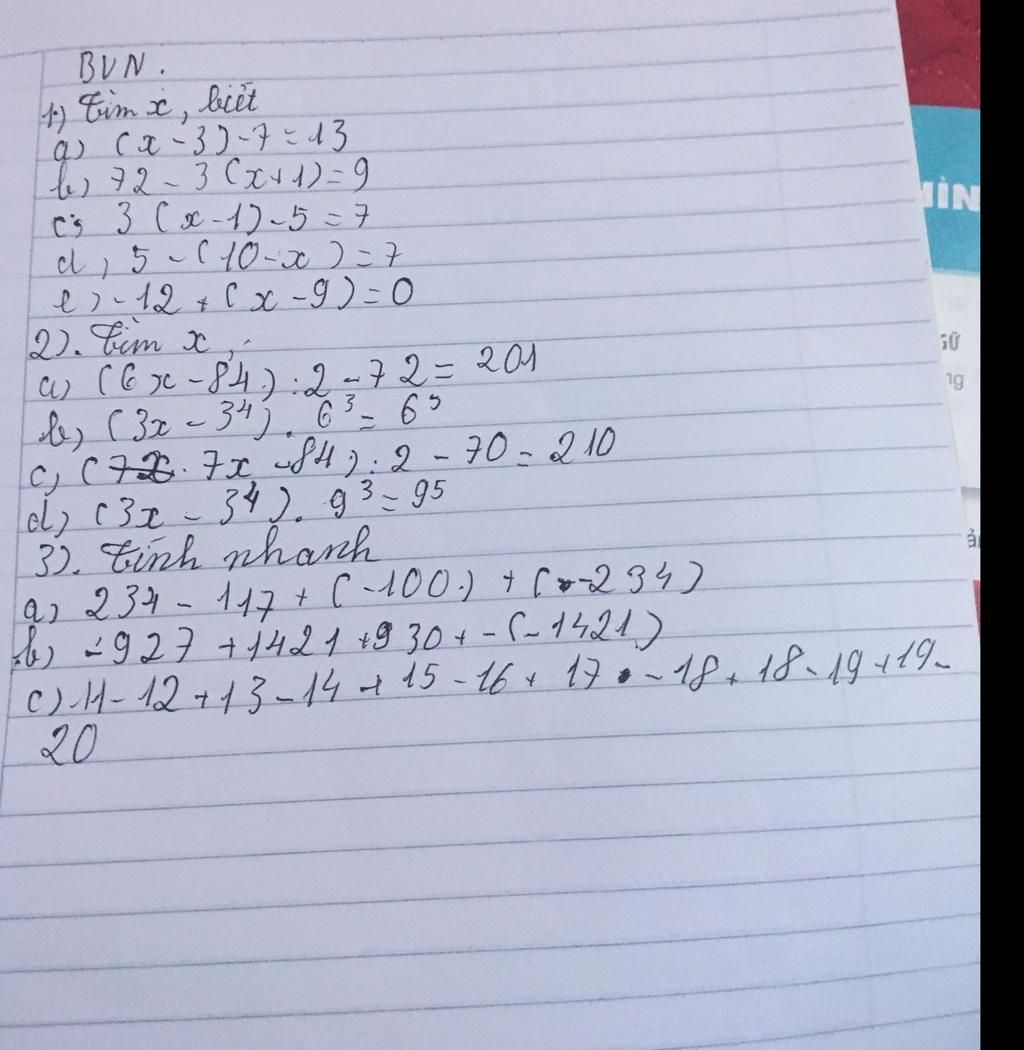 BVN.
1) Tìm x, biết
a) (x - 3) - 7 = 13
b) 72 - 3(x+1) = 9
c) 3(x-1) - 5 = 7
d) 5 - (10 - x) = 7
e) -12 + (x - 9) = 0
2). Tìm x,
a) (6x - 84) : 2 - 72 = 201
b) (3x - 3⁴). 6³ = 6⁵
c) (7x - 84) : 2 - 70 = 210
d) (3x - 3⁴). 9³ = 95
3). Tính nhanh
a) 234 - 117 + (-100) + (-234)
b) -927 + 1421 + 930 + -(-1421)
c) 11 - 12 + 13 - 14 + 15 - 16 + 17 - 18 + 18 - 19 + 19 -
20
ÌN
ng